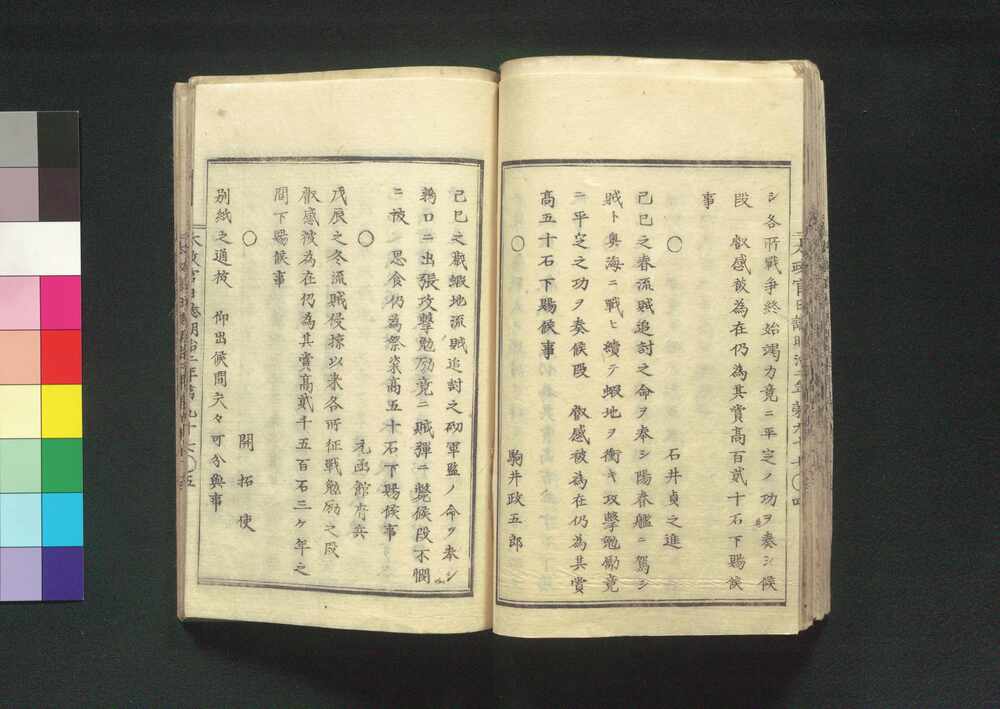 シ各所戦争終始竭力竟ニ平定ノ功ヲ奏シ候
段　叡感被為在仍為其賞高百貳十石下賜候
事
○　石井貞之進
己巳之春流賊追討之命ヲ奉シ陽春艦ニ駕シ
賊ト奥海ニ戦ヒ續テ蝦地ヲ衝キ攻撃勉励竟
ニ平定之功ヲ奏候段　叡感被為在仍為其賞
高五十石下賜候事
○　駒井政五郎
己巳之夏蝦地流賊追討之砌軍監ノ命ヲ奉シ
口ニ出張攻撃勉励竟ニ賊弾ニ斃候段不憫
ニ被　思食仍為祭粢高五十石下賜候事
○　元函館府兵
戊辰之冬流賊侵掠以来各所征戦勉励之段
叡感被為在仍為其賞高貳千五百石三ヶ年之
間下賜候事
○　開拓使
別紙之通被　仰出候間夫々可分與事